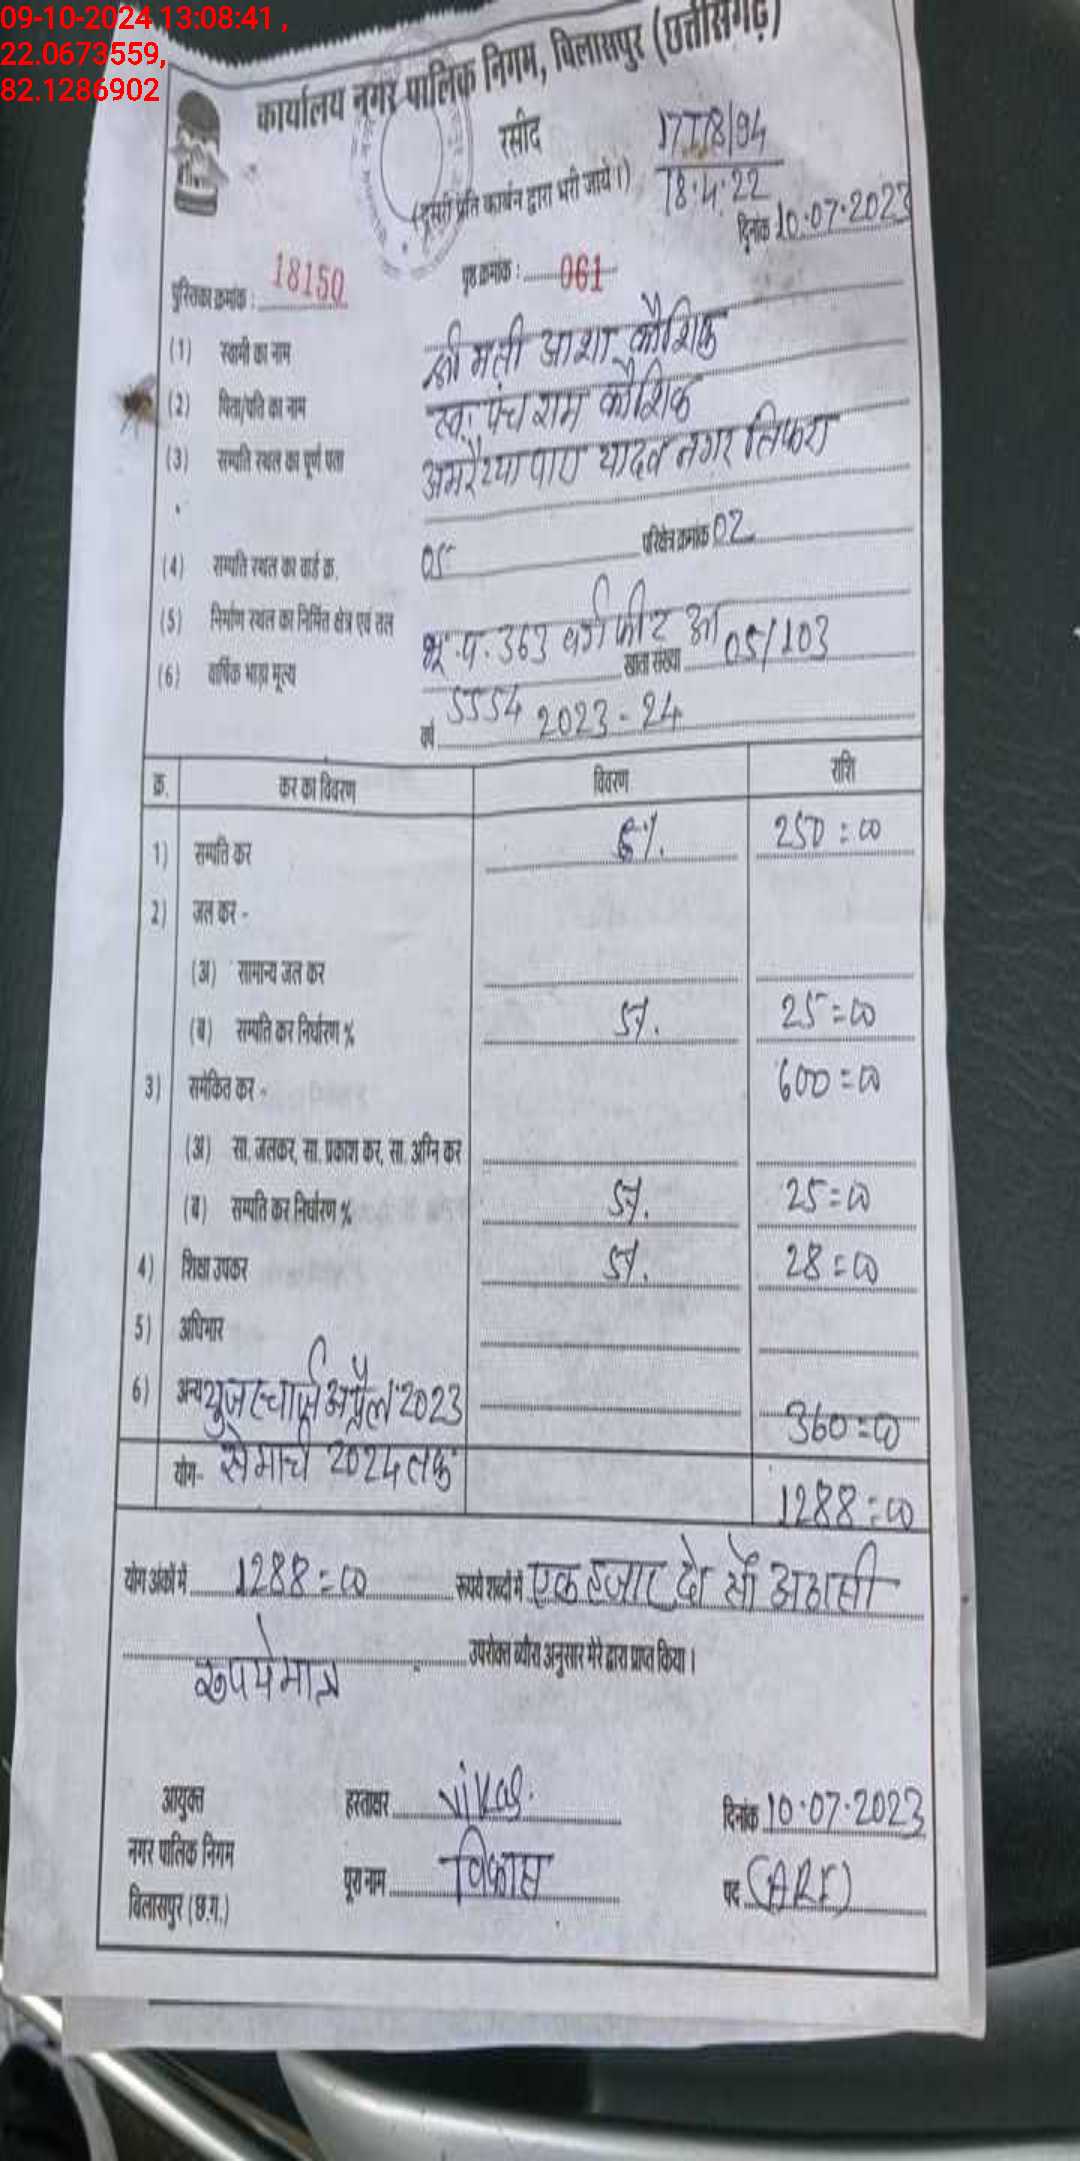 09-10-2024 13:08:41 ,
22.0673559,
82.1286902
कार्यालय नगर पालिक निगम, बिलासपुर (छत्तीसगढ़)
रसीद
(दूसरी प्रति कार्बन द्वारा भरी जाये।)
18.4.22
दिनांक 10.07.2023
पुस्तिका क्रमांक : 18150 पृष्ठ क्रमांक : 061
(1) स्वामी का नाम श्रीमती आशा कौशिक
(2) पिता/पति का नाम स्व. पंच राम कौशिक
(3) सम्पति स्थल का पूर्ण पता अमरैय्या पारा यादव नगर तिफरा
(4) सम्पति स्थल का वार्ड क्र. 05 परिक्षेत्र क्रमांक 02
(5) निर्माण स्थल का निर्मित क्षेत्र एवं तल भू.प. 363 वर्ग फीट आ
(6) वार्षिक भाड़ा मूल्य 5554 खाता संख्या 05/103
वर्ष 2023-24
क्र. कर का विवरण विवरण राशि
1) सम्पति कर 6%. 250=00
2) जल कर -
(अ) सामान्य जल कर
(ब) सम्पति कर निर्धारण % 5%. 25=00
3) समेकित कर - 600=00
(अ) सा. जलकर, सा. प्रकाश कर, सा. अग्नि कर
(ब) सम्पति कर निर्धारण % 5%. 25=00
4) शिक्षा उपकर 5%. 28=00
5) अधिभार
6) अन्य यूजर चार्ज अप्रैल 2023 360=00
योग- से मार्च 2024 तक 1288=00
योग अंकों में 1288=00 रूपये शब्दों में एक हजार दो सौ अठासी
रूपये मात्र उपरोक्त ब्यौरा अनुसार मेरे द्वारा प्राप्त किया।
आयुक्त हस्ताक्षर Vikas. दिनांक 10.07.2023
नगर पालिक निगम पूरा नाम विकास पद (ARI)
बिलासपुर (छ.ग.)